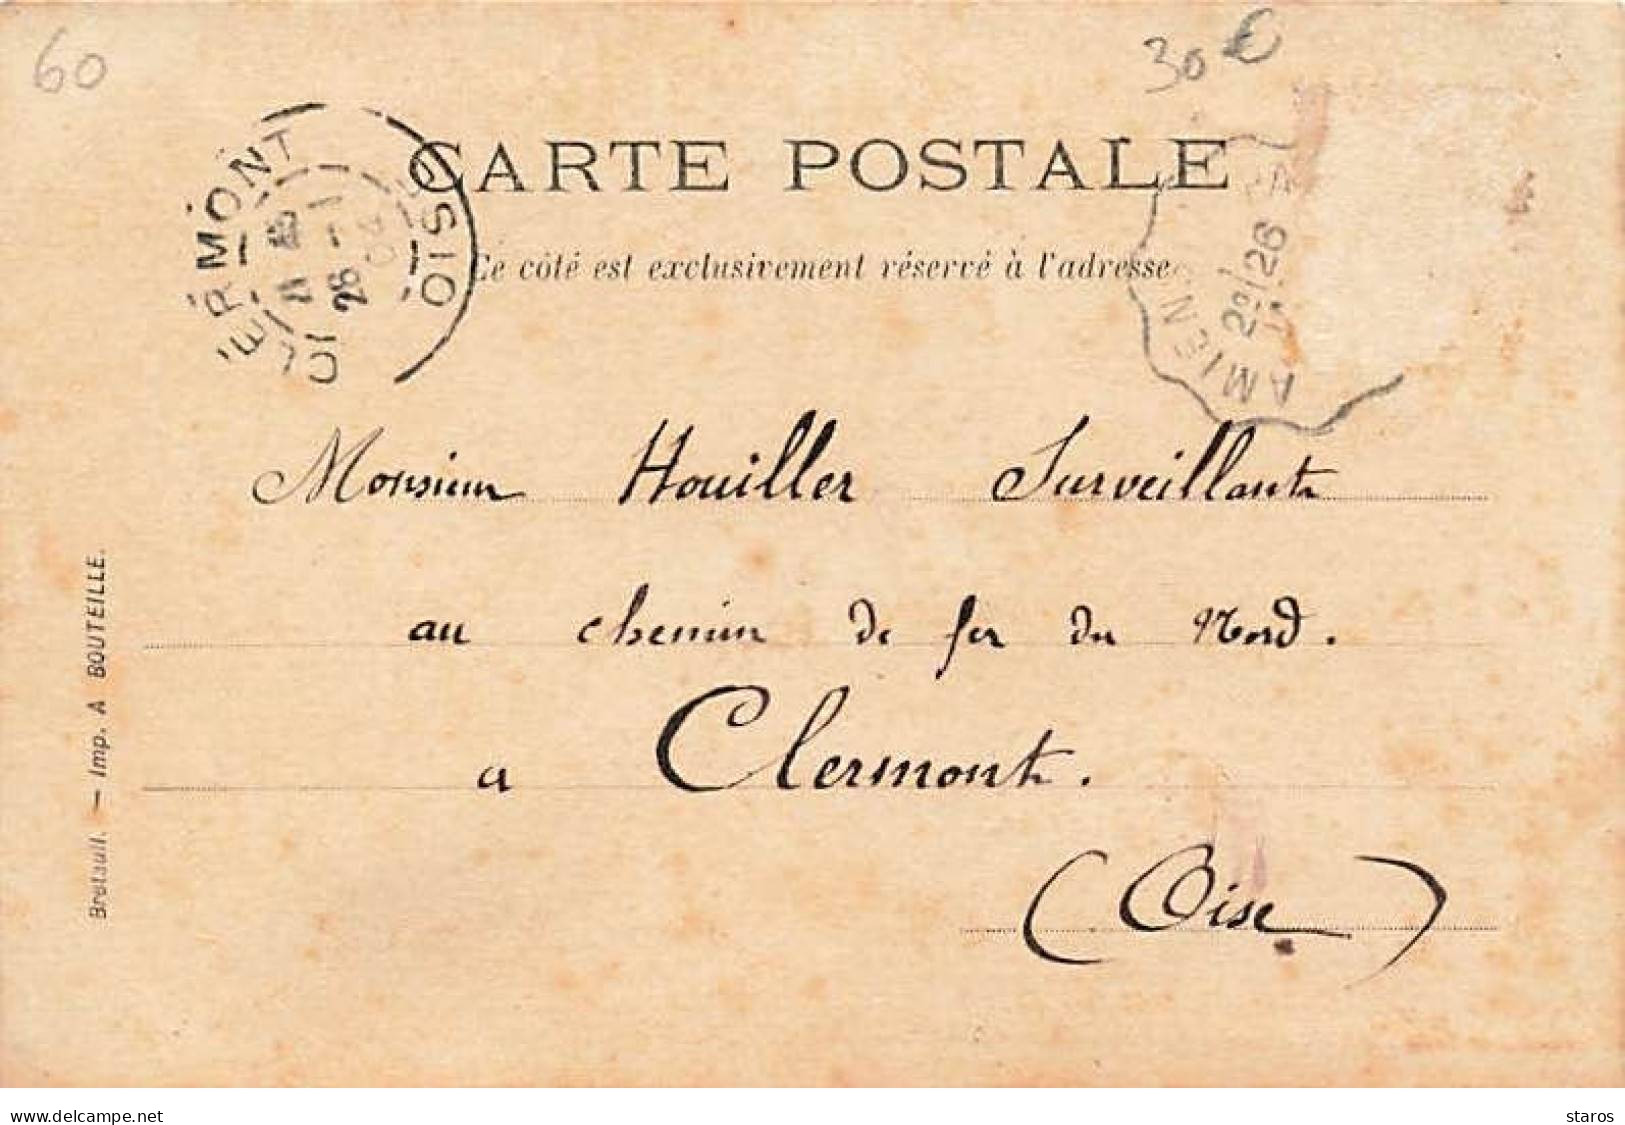 60
30 €
CARTE POSTALE
Ce côté est exclusivement réservé à l'adresse
CLERMONT
OISE
26 -1
AMIENS
2º/26
Monsieur Houiller Surveillant
au chemin de fer du Nord.
a Clermont.
(Oise)
Breteuil. — Imp. A BOUTEILLE.
www.delcampe.net
staros